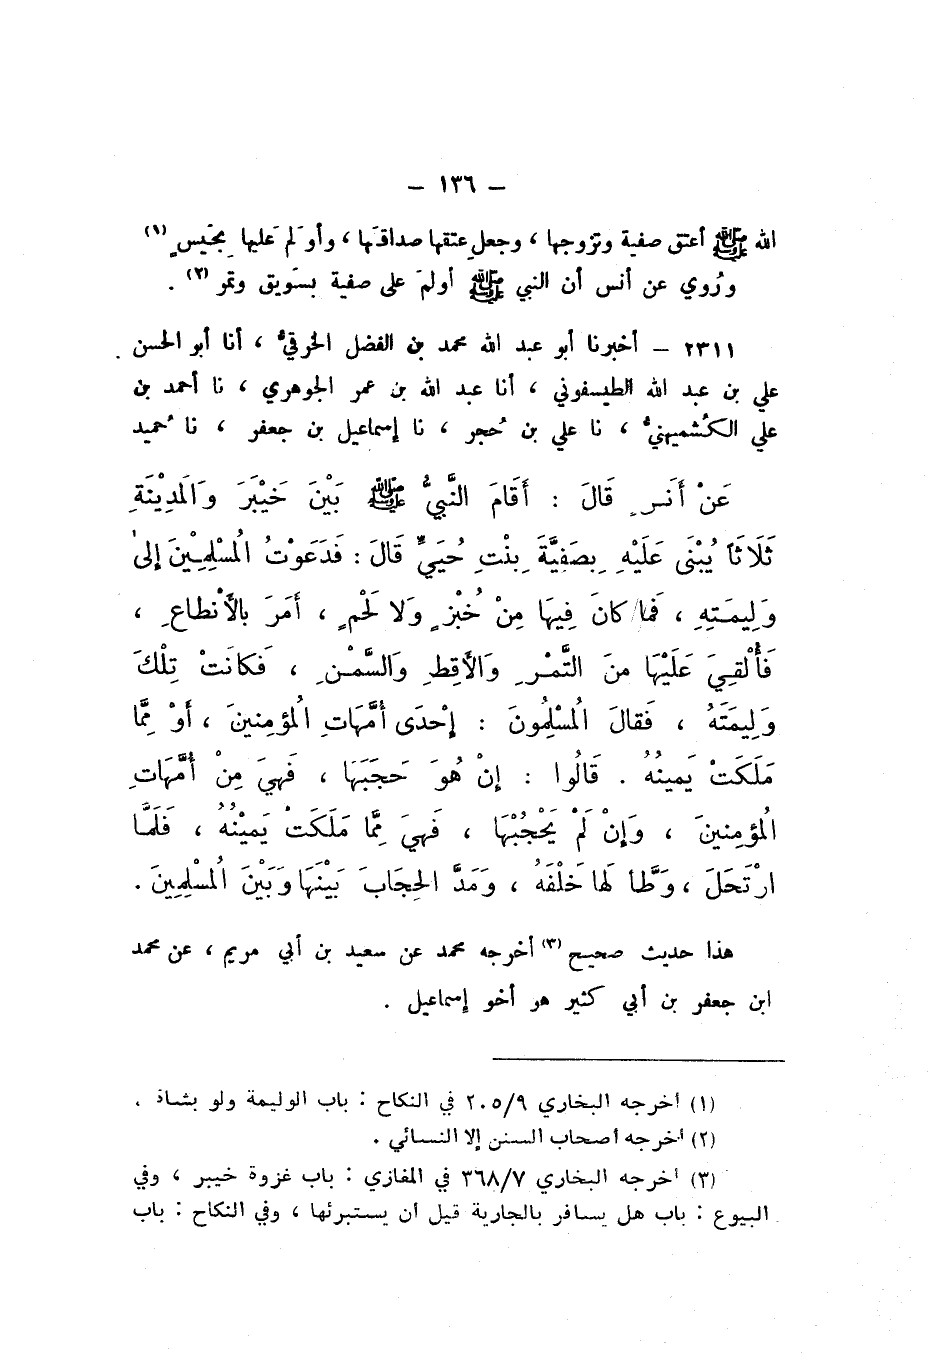 – ١٣٦ –
الله ﷺ أعتق صفية وتزوجها ، وجعل عتقها صداقَها ، وأوْلَم عَليها بِحَيسٍ (١)
ورُوي عن أنس أن النبي ﷺ أولمَ على صفية بسَويق وتمر (٢) .
٢٣١١ – أخبرنا أبو عبد الله محمد بن الفضل الخرقيُّ ، أنا أبو الحسن
علي بن عبد الله الطيسفوني ، أنا عبد الله بن عمر الجوهري ، نا أحمد بن
علي الكُشميهنيُّ ، نا علي بن حُجر ، نا إسماعيل بن جعفر ، نا حُميد
عَنْ أَنَسٍ قَالَ : أَقَامَ النَّبِيُّ ﷺ بَيْنَ خَيْبَرَ وَالمَدِيْنَةِ
ثَلَاثَاً يُبْنَى عَلَيْهِ بِصَفِيَّةَ بِنْتِ حُيَيٍّ قَالَ : فَدَعَوْتُ الْمُسْلِمِيْنَ إِلى
وَلِيمَتِهِ ، فَمَا كَانَ فِيهَا مِنْ خُبْزٍ وَلا لَحْمٍ ، أَمَرَ بالأَنْطَاعِ ،
فَأُلْقِيَ عَلَيْهَا مِنَ التَّمْرِ وَالأَقِطِ وَالسَّمْنِ ، فَكَانَتْ تِلْكَ
وَلِيمَتَهُ ، فَقَالَ الْمُسْلِمُونَ : إِحْدَى أُمَّهَاتِ الْمُؤمِنينَ ، أَوْ مِمَّا
مَلَكَتْ يَمِينُهُ . قَالُوا : إِنْ هُوَ حَجَبَهَا ، فَهِيَ مِنْ أُمَّهَاتِ
الْمُؤمِنينَ ، وَإِنْ لَمْ يَحْجُبْهَا ، فَهِيَ مِمَّا مَلَكَتْ يَمِيْنُهُ ، فَلَمَّا
ارْتَحَلَ ، وَطَّأ لَهَا خَلْفَهُ ، وَمَدَّ الحِجَابَ بَيْنَهَا وَبَيْنَ الْمُسْلِمِينَ .
هذا حديث صحيح (٣) أخرجه محمد عن سعيد بن أبي مريم ، عن محمد
ابن جعفر بن أبي كثير هو أخو إسماعيل .
(١) أخرجه البخاري ٢٠٥/٩ في النكاح : باب الوليمة ولو بشاة .
(٢) أخرجه أصحاب السنن إلا النسائي .
(٣) أخرجه البخاري ٣٦٨/٧ في المغازي : باب غزوة خيبر ، وفي
البيوع : باب هل يسافر بالجارية قبل أن يستبرئها ، وفي النكاح : باب